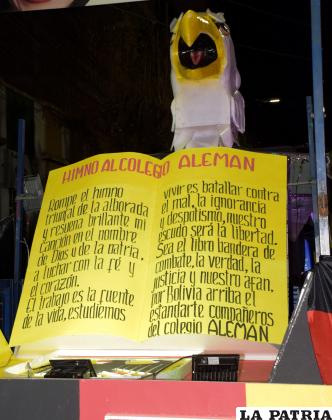 HIMNO AL COLEGIO ALEMAN
Rompe el himno
triunfal de la alborada
y resuena brillante mi
canción en el nombre
de Dios y de la patria.
a luchar con la fe y
el corazón.
El trabajo es la fuente
de la vida, estudiemos
vivir es batallar contra
el mal, la ignorancia
y despotismo, nuestro
escudo será la libertad.
Sea el libro bandera de
combate, la verdad, la
justicia y nuestro afan.
por Bolivia arriba el
estandarte compañeros
del colegio ALEMAN
LA PATRIA